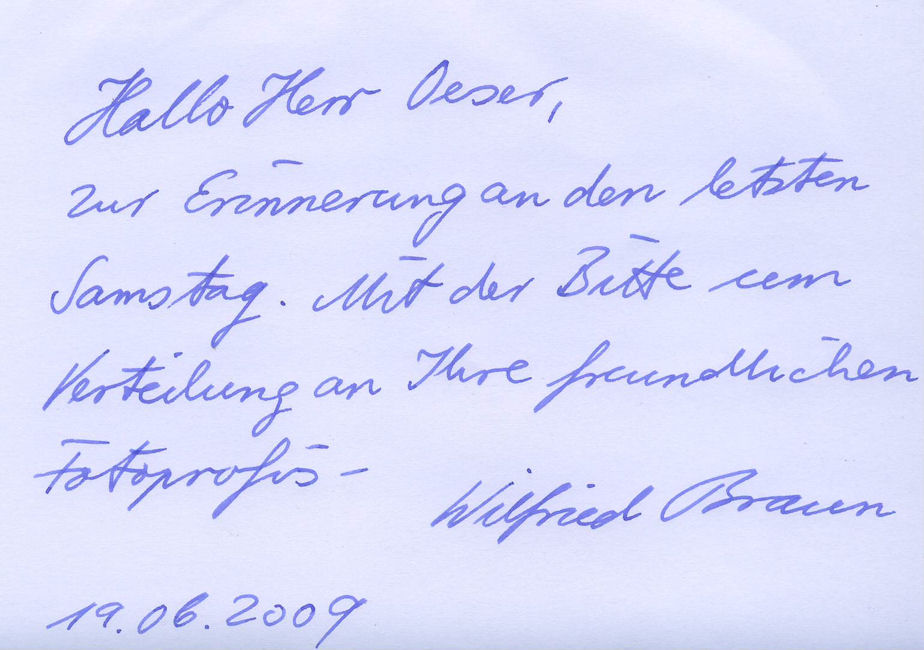 Hallo Herr Oeser,
zur Erinnerung an den letzten
Samstag. Mit der Bitte um
Verteilung an Ihre freundlichen
Fotoprofis -
Wilfried Braun
19.06.2009